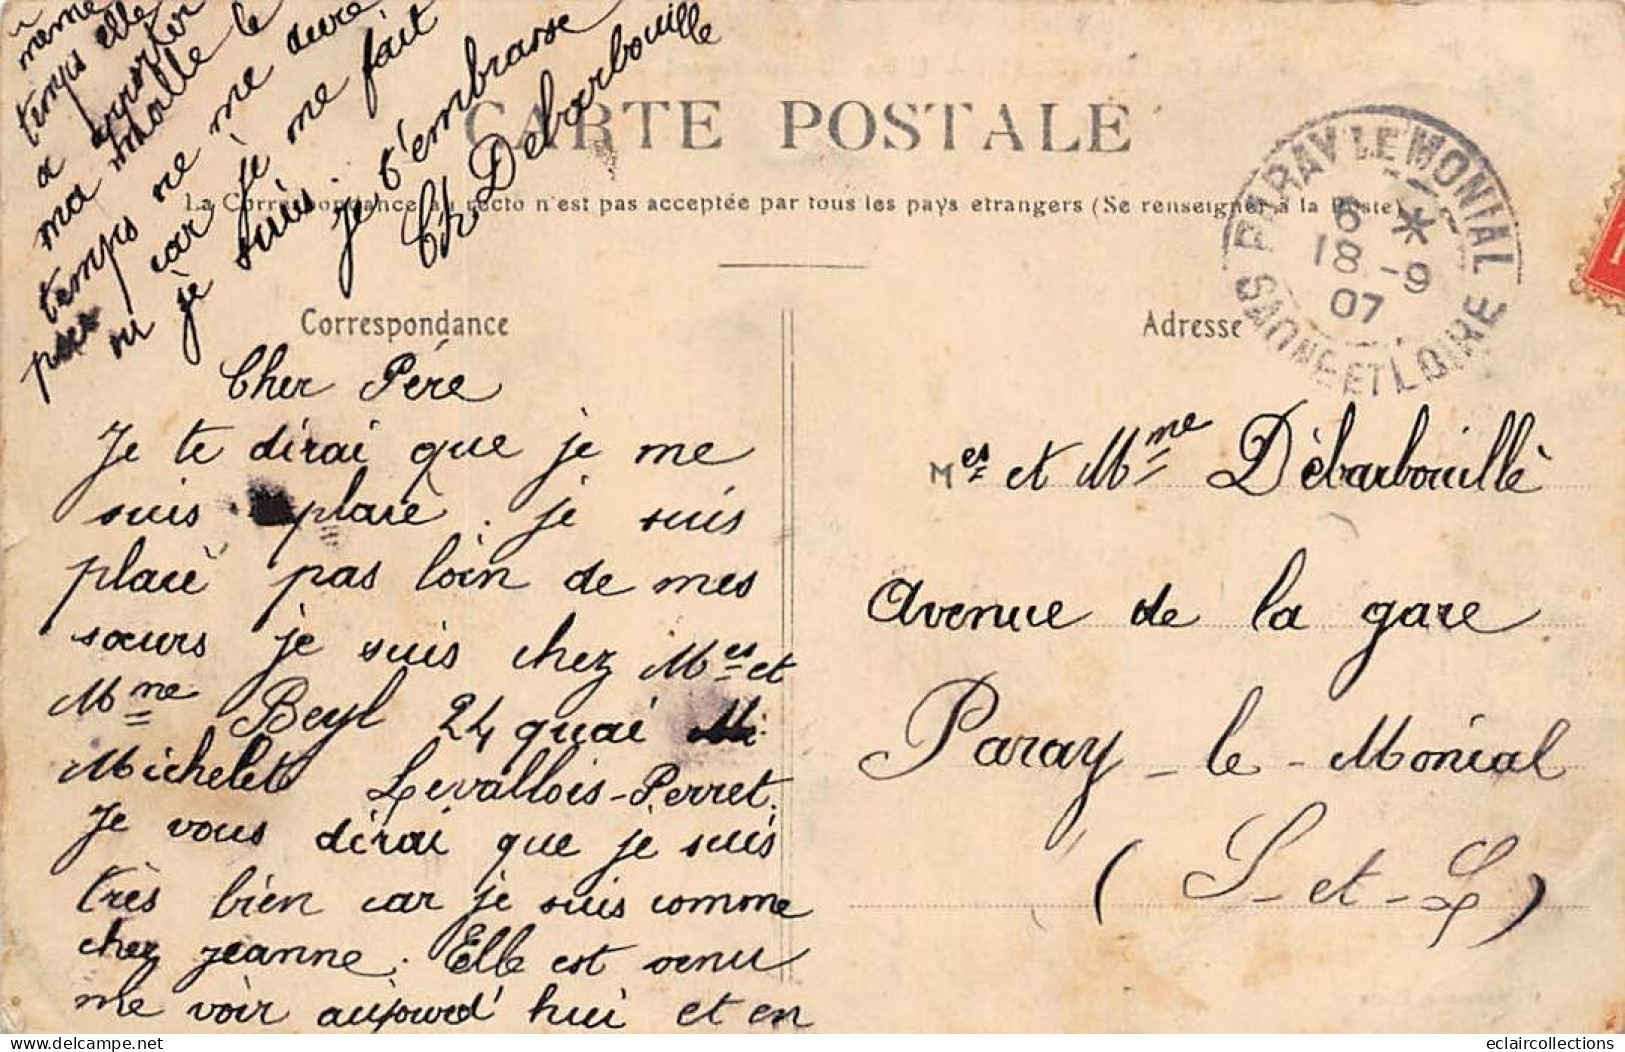 CARTE POSTALE
La Correspondance au recto n'est pas acceptée par tous les pays etrangers (Se renseigner à la Poste)
Correspondance
Cher Père
Je te dirai que je me
suis place. je suis
placé pas loin de mes
sœurs je suis chez Mes et
Mme Beyl 24 quai
Michelet Levallois-Perret.
Je vous dirai que je suis
très bien car je suis comme
chez jeanne. Elle est venu
me voir aujourd'hui et en
même
temps elle
a apporter
ma malle le
temps ne me dure
pas car je me fait
ou je suis. je t'embrasse
Ch Debarbouille
Adresse
PARAY LE MONIAL
6 *
18 -9
07
SAONE-ET-LOIRE
Mes et Mme Dèbarbouillè
Avenue de la gare
Paray-le-Monial
(S-et-L)
eclaircollections
delcampe.net